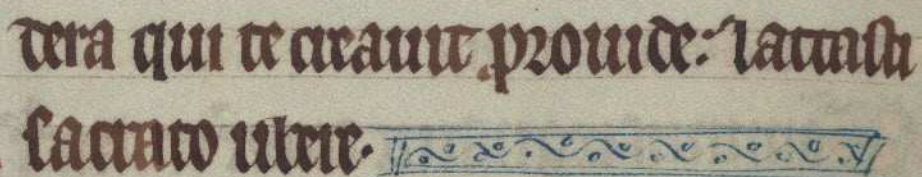 dera qui te creauit prouide: lactasti
sacrato ubere.